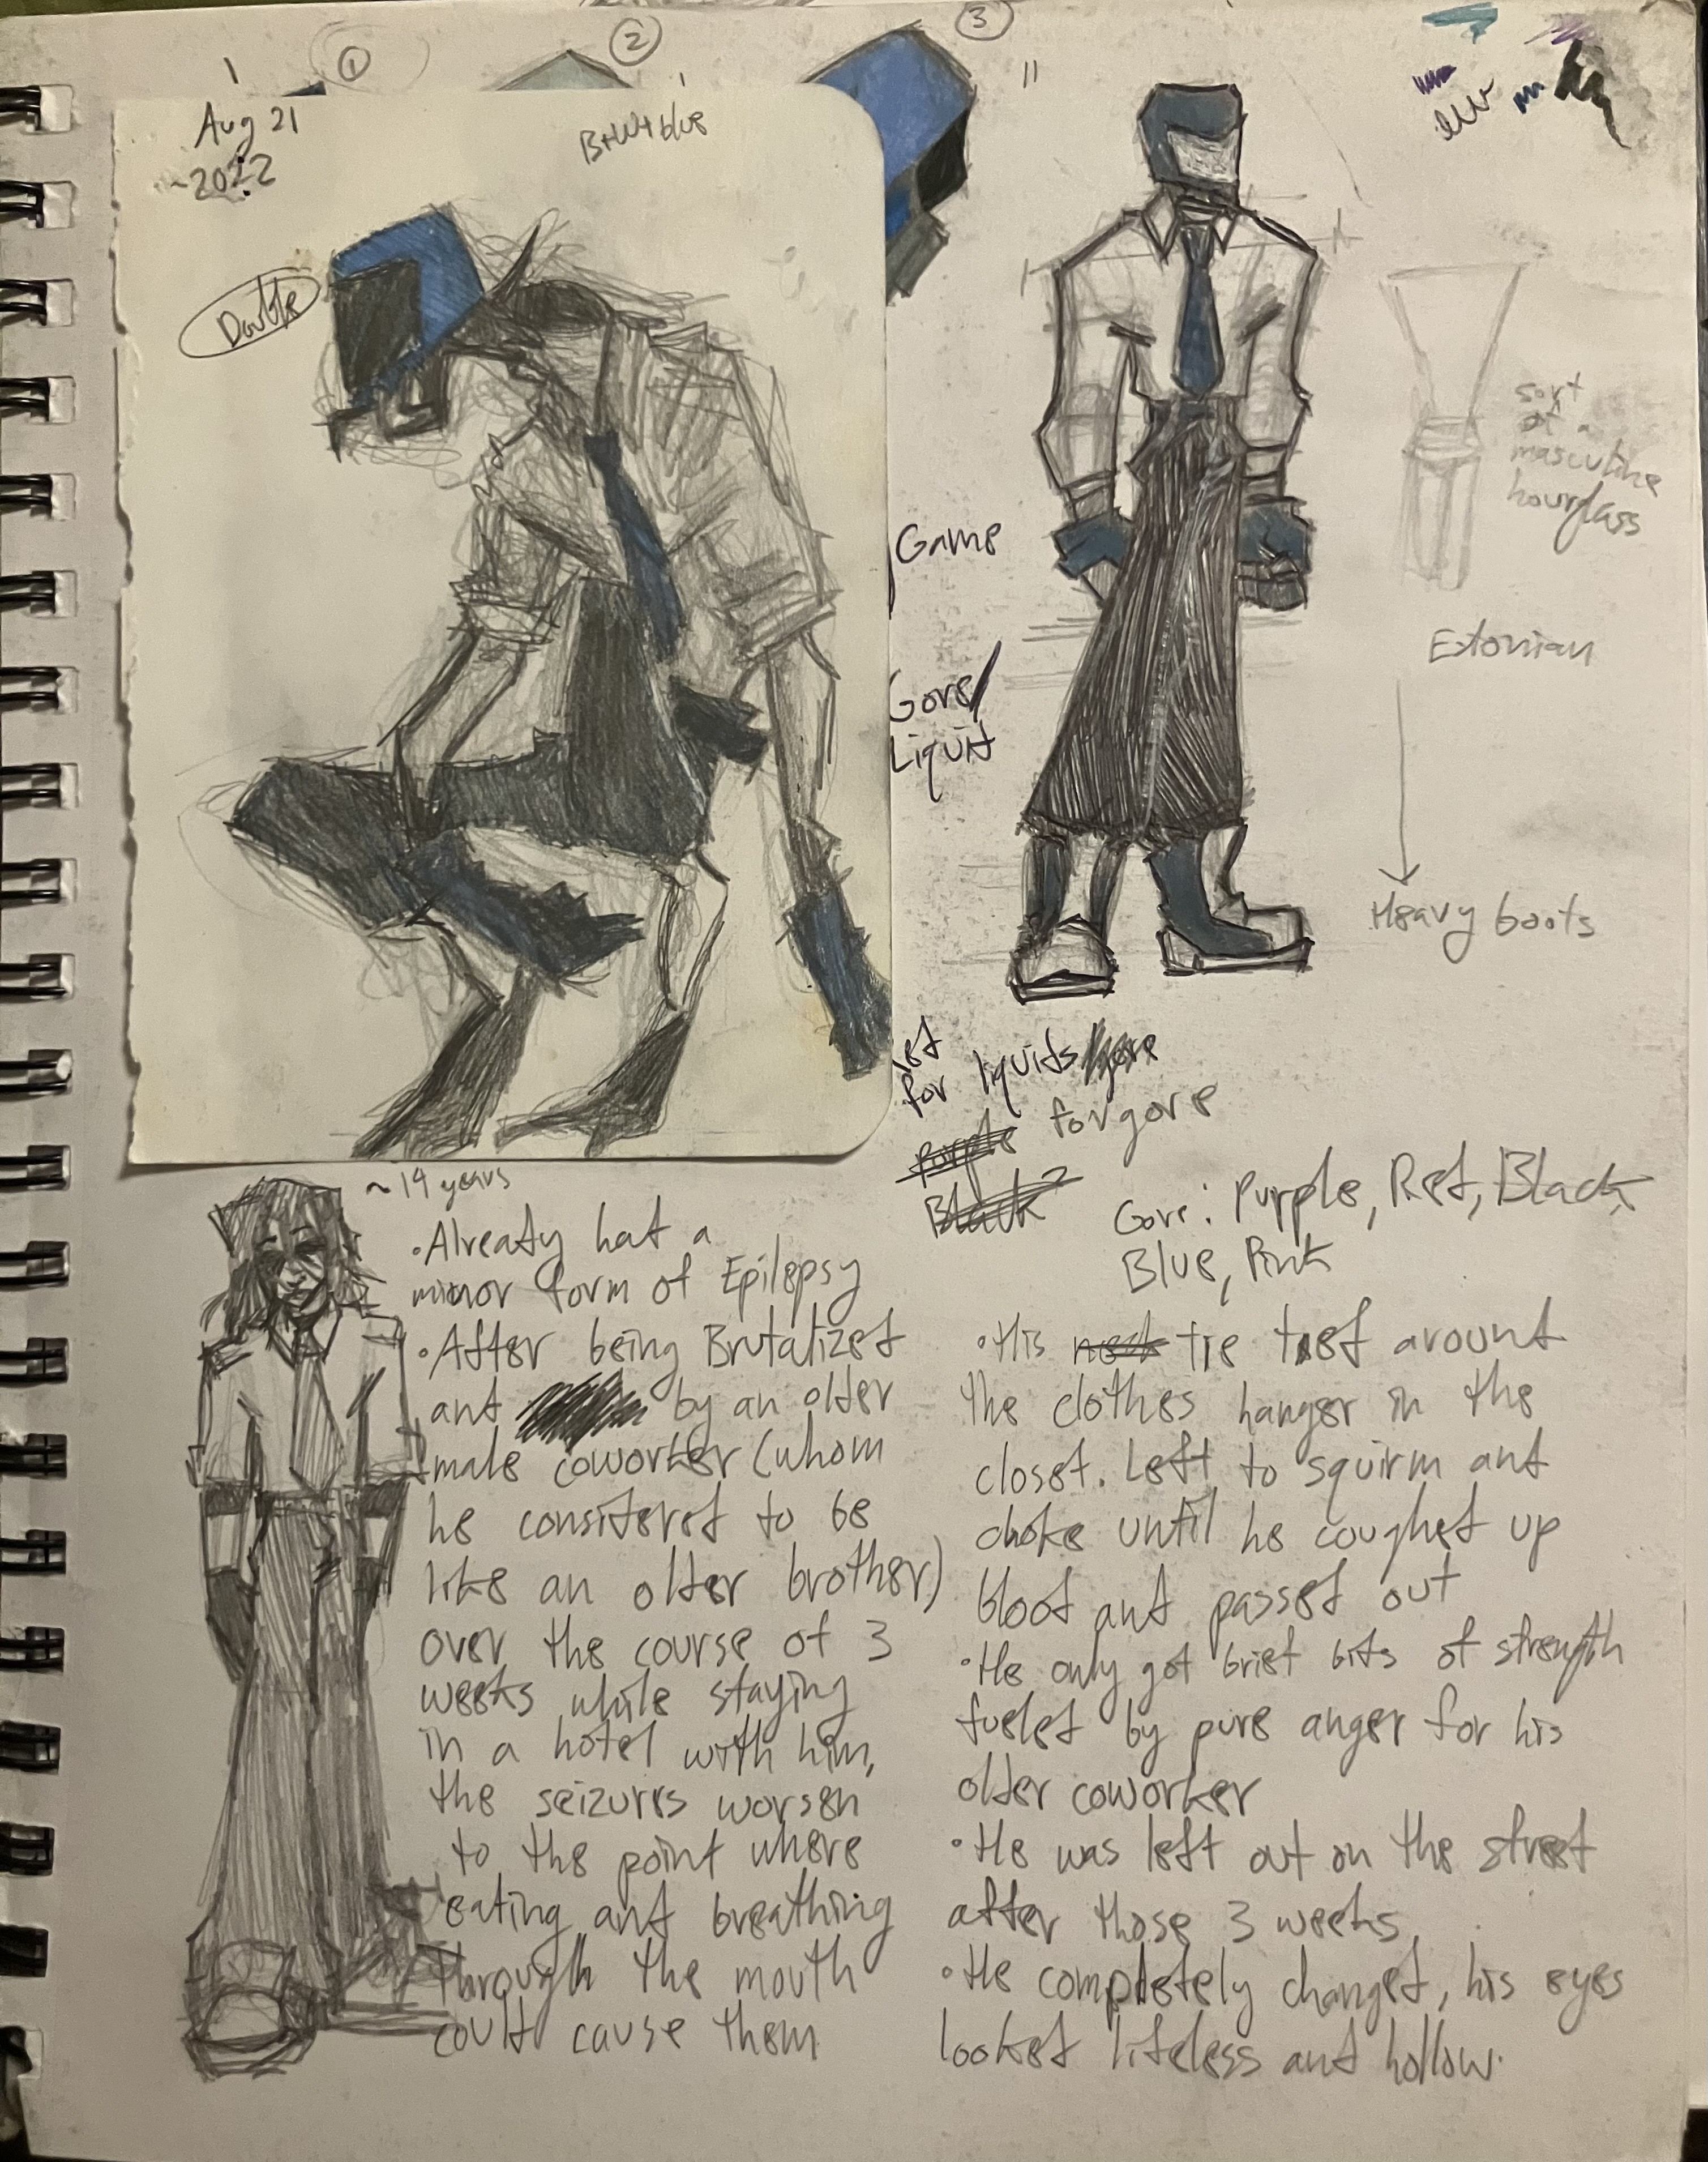 ① ② ③
Aug 21
~2022
B+W+blue
Double
Game
Gore/
Liquid
sort
of a
masculine
hourglass
Estonian
Heavy boots
for liquids
for gore
Gore: Purple, Red, Black,
Blue, Pink
~19 years
•Already had a
minor form of Epilepsy
•After being Brutalized
and by an older
male coworker (whom
he considered to be
like an older brother)
over the course of 3
weeks while staying
in a hotel with him,
the seizures worsen
to the point where
eating and breathing
through the mouth
could cause them
•His tie tied around
the clothes hanger in the
closet. Left to squirm and
choke until he coughed up
blood and passed out
•He only got brief bits of strength
fueled by pure anger for his
older coworker
•He was left out on the street
after those 3 weeks
•He completely changed, his eyes
looked lifeless and hollow.